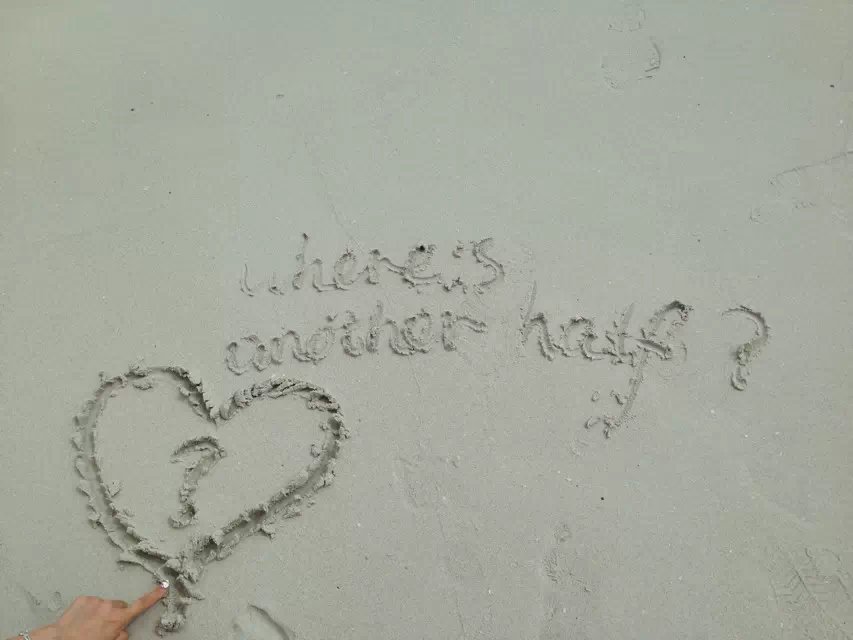 where is
another half?
?